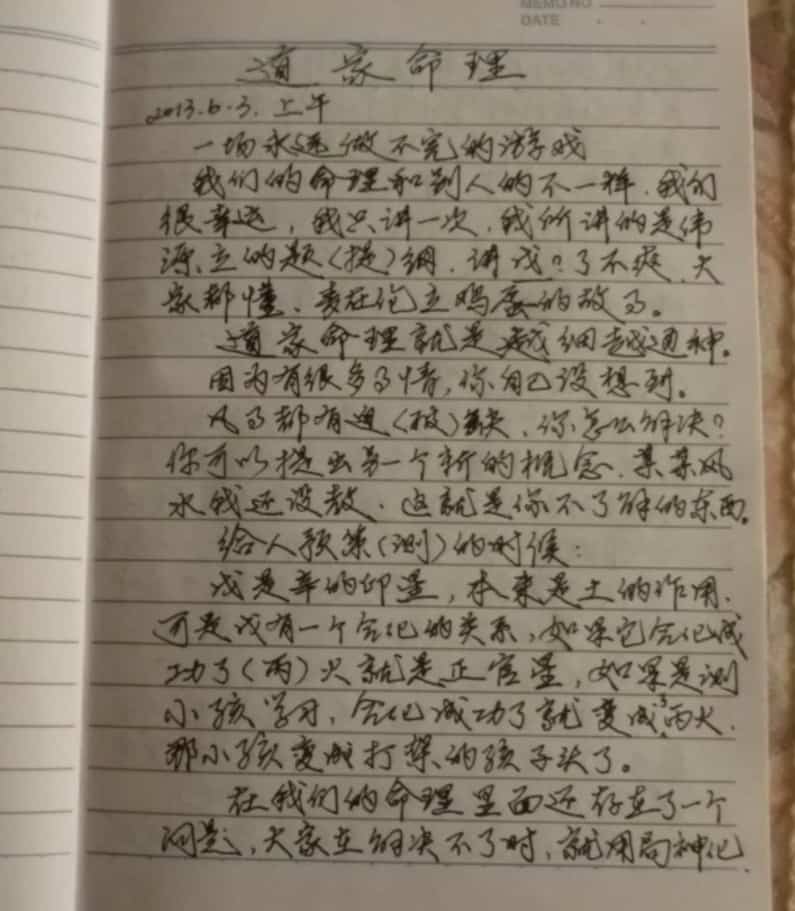 MEMO NO
DATE . .
道家命理
2013.6.3. 上午
一场永远做不完的游戏
我们的命理和别人的不一样，我们
很幸运，我只讲一次，我所讲的是伟
源立的题（提）纲，讲戌？了不爽，大
家都懂、责在论立鸡蛋的故了。
道家命理就是越细越通神。
因为有很多事情，你自己没想到。
凡事都有进（破）缺，你怎么解决？
你可以提出另一个新的概念，某某风
水我还没教，这就是你不了解的东西。
给人预策（测）的时候：
戊是辛的印星，本来是土的作用，
可是戊有一个合化的关系，如果它合化成
功了（丙）火就是正官星，如果是测
小孩学习，合化成功了就变成丙火，
那小孩变成打架的孩子头了。
在我们的命理里面还存在了一个
问题，大家在解决不了时，就用局神化